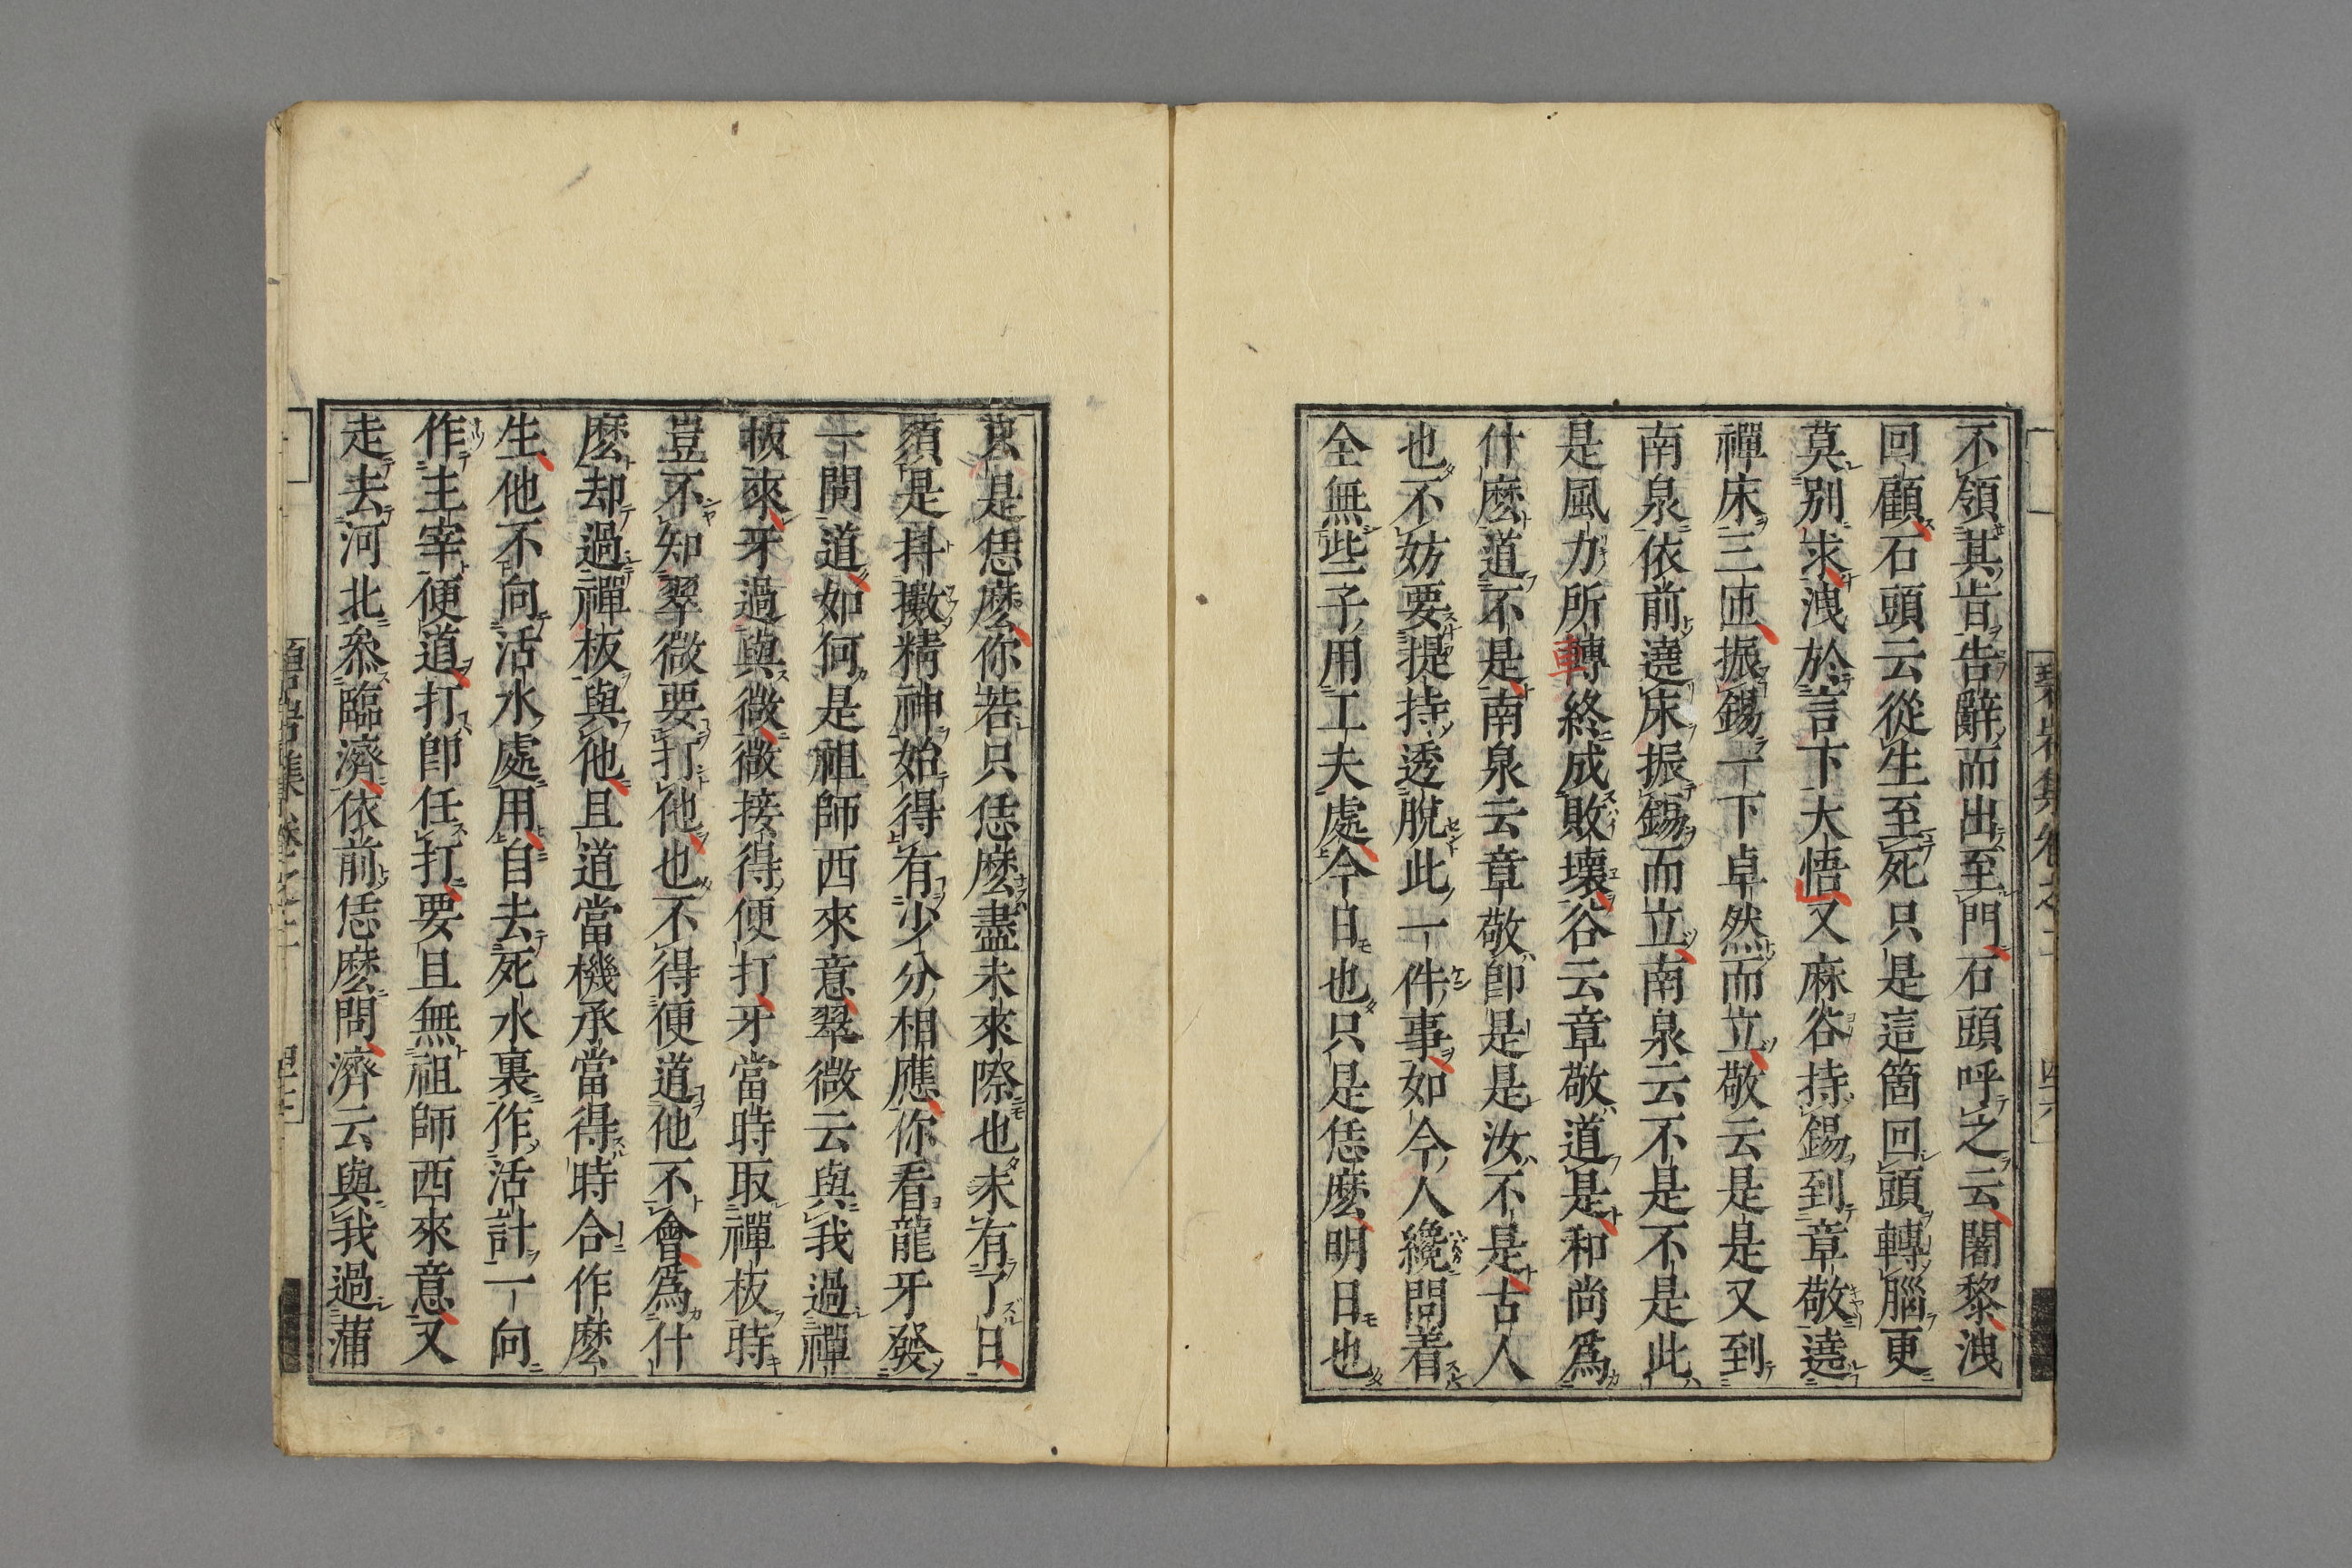 不領其旨告辭而出至門石頭呼之云闍黎洩
回顧石頭云從生至死只是這箇回頭轉腦更
莫別求洩於言下大悟又麻谷持錫到章敬遶
禪床三匝振錫一下卓然而立敬云是是又到
南泉依前遶床振錫而立南泉云不是不是此
是風力所轉終成敗壞谷云章敬道是和尚爲
什麼道不是南泉云章敬即是是汝不是古人
也不妨要提持透脫此一件事如今人纔問着
全無些子用工夫處今日也只是恁麼明日也
是恁麼你若只恁麼盡未來際也未有了日
須是抖擻精神始得有少分相應你看龍牙發
一問道如何是祖師西來意翠微云與我過禪
板來牙過與微微接得便打牙當時取禪板時
豈不知翠微要打他也不得便道他不會爲什
麼却過禪板與他且道當機承當得時合作麼
生他不向活水處用自去死水裏作活計一向
作主宰便道打即任打要且無祖師西來意又
走去河北參臨濟依前恁麼問濟云與我過蒲